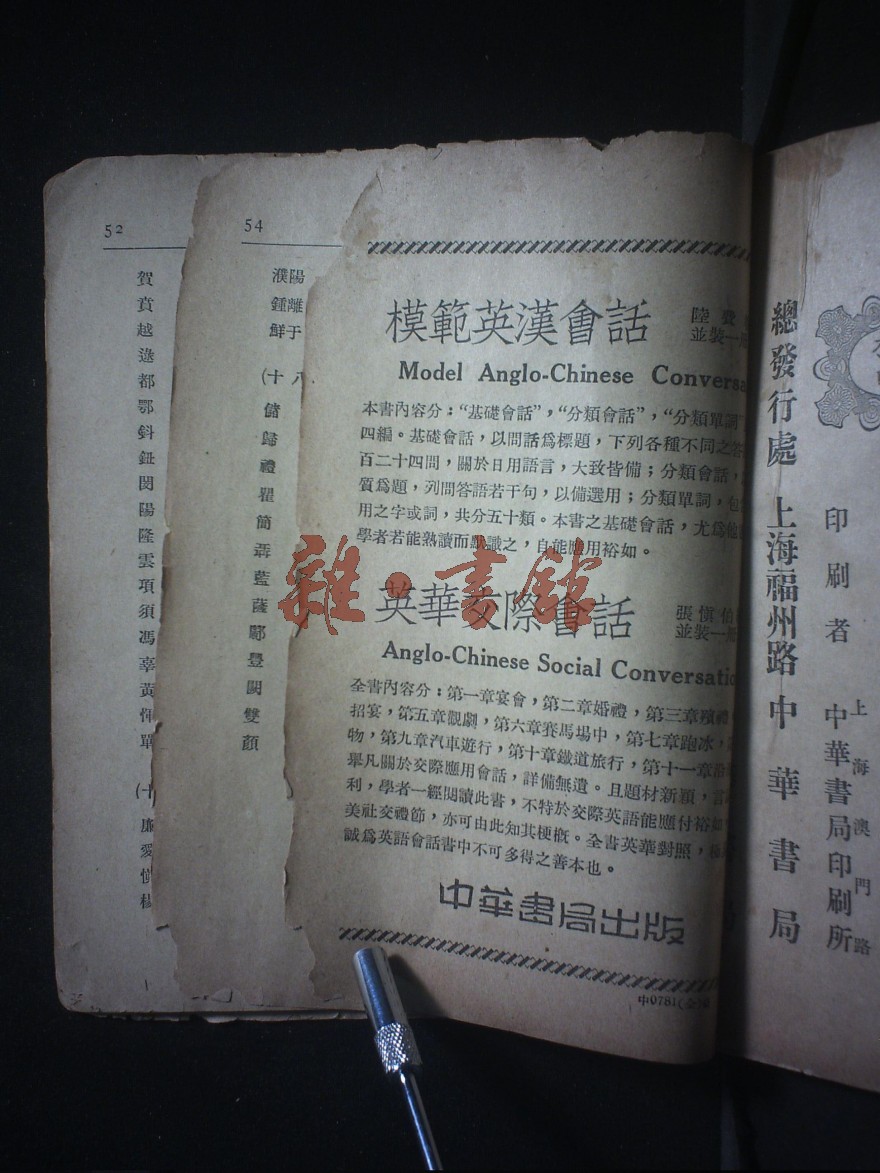 52
賀
賁
越
逯
都
鄂
鈄
鈕
閔
陽
隆
雲
項
須
馮
辜
黃
惲
單
(十
廉
愛
慎
楊
54
濮陽
鍾離
鮮于
(十八
儲
歸
禮
瞿
簡
聶
藍
薩
鄺
豐
闕
雙
顏
模範英漢會話
陸費
並裝一
Model Anglo-Chinese Conversa
本書內容分：“基礎會話”，“分類會話”，“分類單詞
四編。基礎會話，以問話爲標題，下列各種不同之答
百二十四問，關於日用語言，大致皆備；分類會話，
質爲題，列問答語若干句，以備選用；分類單詞，包
用之字或詞，共分五十類。本書之基礎會話，尤爲他
學者若能熟讀而默識之，自能應用裕如。
英華交際會話
張慎伯
並裝一
Anglo-Chinese Social Conversatio
全書內容分：第一章宴會，第二章婚禮，第三章殯禮
招宴，第五章觀劇，第六章賽馬場中，第七章跑冰，
物，第九章汽車遊行，第十章鐵道旅行，第十一章
舉凡關於交際應用會話，詳備無遺。且題材新穎，言
利，學者一經閱讀此書，不特於交際英語能應付裕如
美社交禮節，亦可由此知其梗概。全書英華對照，
誠爲英語會話書中不可多得之善本也。
中華書局出版
中0781(全
印刷者 上海澳門路 中華書局印刷所
總發行處 上海福州路 中華書局
雜·書館